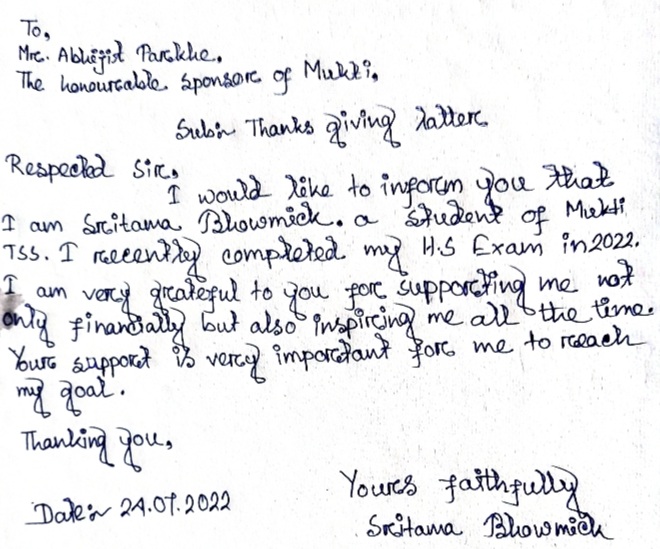 To,
Mr. Abhijit Parkhe.
The honourable sponsor of Mukti.
Sub:- Thanks giving latter
Respected Sir,
I would like to inform you that
I am Sritama Bhowmick. a student of Mukti
TSS. I recently completed my H.S Exam in 2022.
I am very grateful to you for supporting me not
only financially but also inspiring me all the time.
Your support is very important for me to reach
my goal.
Thanking you,
Yours faithfully
Date:- 24.07.2022
Sritama Bhowmick